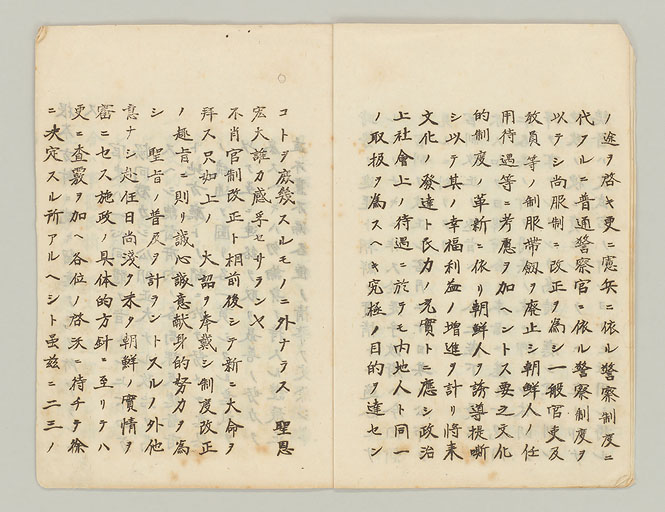 ノ途ヲ啓キ更ニ憲兵ニ依ル警察制度ニ
代フルニ普通警察官ニ依ル警察制度ヲ
以テシ尚服制ニ改正ヲ為シ一般官吏及
教員等ノ制服帯劔ヲ廃止シ朝鮮人ノ任
用待遇等ニ考慮ヲ加ヘントス要之文化
的制度ノ革新ニ依リ朝鮮人ヲ誘導提嘶
シ以テ其ノ幸福利益ノ増進ヲ計リ将来
文化ノ發達ト民力ノ充實トニ應シ政治
上社會上ノ待遇ニ於テモ内地人ト同一
ノ取扱ヲ為スヘキ究極ノ目的ヲ達セン
コトヲ庶幾スルモノニ外ナラス　聖恩
宏大誰カ感孚セサランヤ
不肖官制改正ト相前後シテ新ニ大命ヲ
拜ス只如上ノ　大詔ヲ奉戴シ制度改正
ノ趣旨ニ則リ誠心誠意献身的努力ヲ為
シ　聖旨ノ普及ヲ計ラントスルノ外他
意ナシ赴任日尚淺ク未タ朝鮮ノ實情ヲ
審ニセス施政ノ具体的方針ニ至リテハ
更ニ査覈ヲ加ヘ各位ノ啓沃ニ待チテ徐
ニ决定スル所アルヘシト虽茲ニ二三ノ